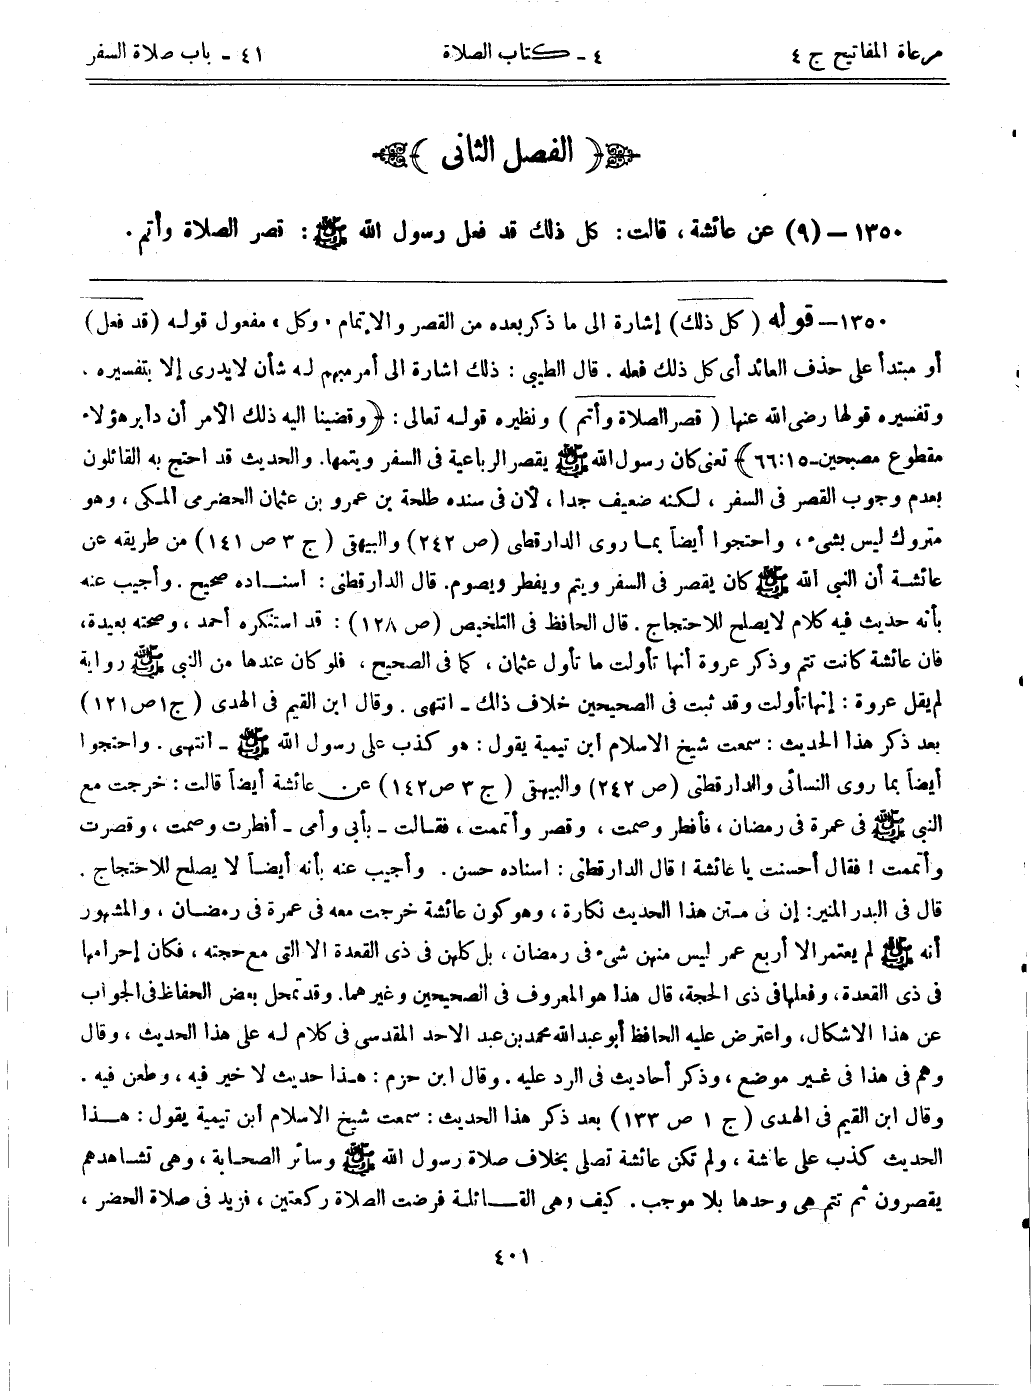 مرعاة المفاتيح ج ٤ ٤ ـ كتاب الصلاة ٤١ ـ باب صلاة السفر
﴿ الفصل الثانى ﴾
١٣٥٠ – (٩) عن عائشة ، قالت : كل ذلك قد فعل رسول الله ﷺ : قصر الصلاة وأتم .
١٣٥٠ – قوله ( كل ذلك ) إشارة الى ما ذكر بعده من القصر والإتمام ، وكل ، مفعول قوله (قد فعل)
أو مبتدأ على حذف العائد أى كل ذلك فعله . قال الطيبي : ذلك اشارة الى أمر مبهم له شأن لا يدرى إلا بتفسيره .
وتفسيره قولها رضى الله عنها ( قصر الصلاة وأتم ) ونظيره قوله تعالى : ﴿وقضينا اليه ذلك الأمر أن دابر هؤلاء
مقطوع مصبحين–٦٦:١٥﴾ تعنى كان رسول الله ﷺ يقصر الرباعية فى السفر ويتمها. والحديث قد احتج به القائلون
بعدم وجوب القصر فى السفر ، لكنه ضعيف جدا ، لأن فى سنده طلحة بن عمرو بن عثمان الحضرمى المكى ، وهو
متروك ليس بشىء ، واحتجوا أيضاً بما روى الدارقطنى (ص ٢٤٢) والبيهقى ( ج ٣ ص ١٤١ ) من طريقه عن
عائشة أن النبي الله ﷺ كان يقصر فى السفر ويتم ويفطر ويصوم. قال الدارقطنى : اسناده صحيح . وأجيب عنه
بأنه حديث فيه كلام لا يصلح للاحتجاج . قال الحافظ فى التلخيص (ص ١٢٨) : قد استنكره أحمد ، وصحته بعيدة،
فان عائشة كانت تتم وذكر عروة أنها تأولت ما تأول عثمان ، كما فى الصحيح ، فلو كان عندها من النبي ﷺ رواية
لم يقل عروة : إنها تأولت وقد ثبت فى الصحيحين خلاف ذالك ـ انتهى . وقال ابن القيم فى الهدى ( ج١ص ١٢١ )
بعد ذكر هذا الحديث : سمعت شيخ الاسلام ابن تيمية يقول : هو كذب على رسول الله ﷺ ـ انتهى . واحتجوا
أيضاً بما روى النسائى والدارقطنى (ص ٢٤٢) والبيهقى ( ج ٣ ص١٤٢ ) عن عائشة أيضاً قالت : خرجت مع
النبي ﷺ فى عمرة فى رمضان ، فأفطر وصمت ، وقصر وأتممت ، فقالت ـ بأبى وأمى ـ أفطرت وصمت ، وقصرت
وأتممت ! فقال أحسنت يا عائشة ! قال الدارقطنى : اسناده حسن . وأجيب عنه بأنه أيضاً لا يصلح للاحتجاج .
قال فى البدر المنير: إن فى متن هذا الحديث نكارة ، وهو كون عائشة خرجت معه فى عمرة فى رمضان ، والمشهور
أنه ﷺ لم يعتمر الا أربع عمر ليس منهن شىء فى رمضان ، بل كلهن فى ذى القعدة الا التى مع حجته ، فكان إحرامها
فى ذى القعدة، وفعلها فى ذى الحجة، قال هذا هو المعروف فى الصحيحين وغيرهما. وقد تمحل بعض الحفاظ فى الجواب
عن هذا الاشكال، واعترض عليه الحافظ أبو عبد الله محمد بن عبد الاحد المقدسى فى كلام له على هذا الحديث ، وقال
وهم فى هذا فى غير موضع ، وذكر أحاديث فى الرد عليه . وقال ابن حزم : هذا حديث لا خير فيه ، وطعن فيه .
وقال ابن القيم فى الهدى ( ج ١ ص ١٣٣ ) بعد ذكر هذا الحديث : سمعت شيخ الاسلام ابن تيمية يقول : هذا
الحديث كذب على عائشة ، ولم تكن عائشة تصلى بخلاف صلاة رسول الله ﷺ وسائر الصحابة ، وهى تشاهدهم
يقصرون ثم تتم هى وحدها بلا موجب . كيف وهى القائلة فرضت الصلاة ركعتين ، فزيد فى صلاة الحضر ،
٤٠١